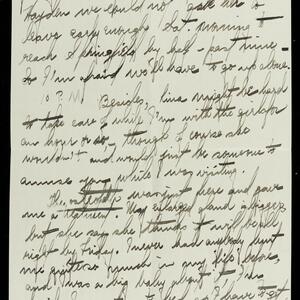 Hayden we could not ask her to
leave early enough Sat. morning to
reach Springfield by half-past nine
So I'm afraid we'll have to go up alone.
10 P.M.
Besides, Lina might be hard
to take care of while I'm with the girls for
an hour or so, though of course she
wouldn't and would just be someone to
amuse you while I was visiting.
The was right here and gave
me a treatment. My enlarged gland
but she says she thinks it will be all
right by Friday. I never had anybody hurt
me quite so much in my life before,
and I was a big baby about it
I have to get